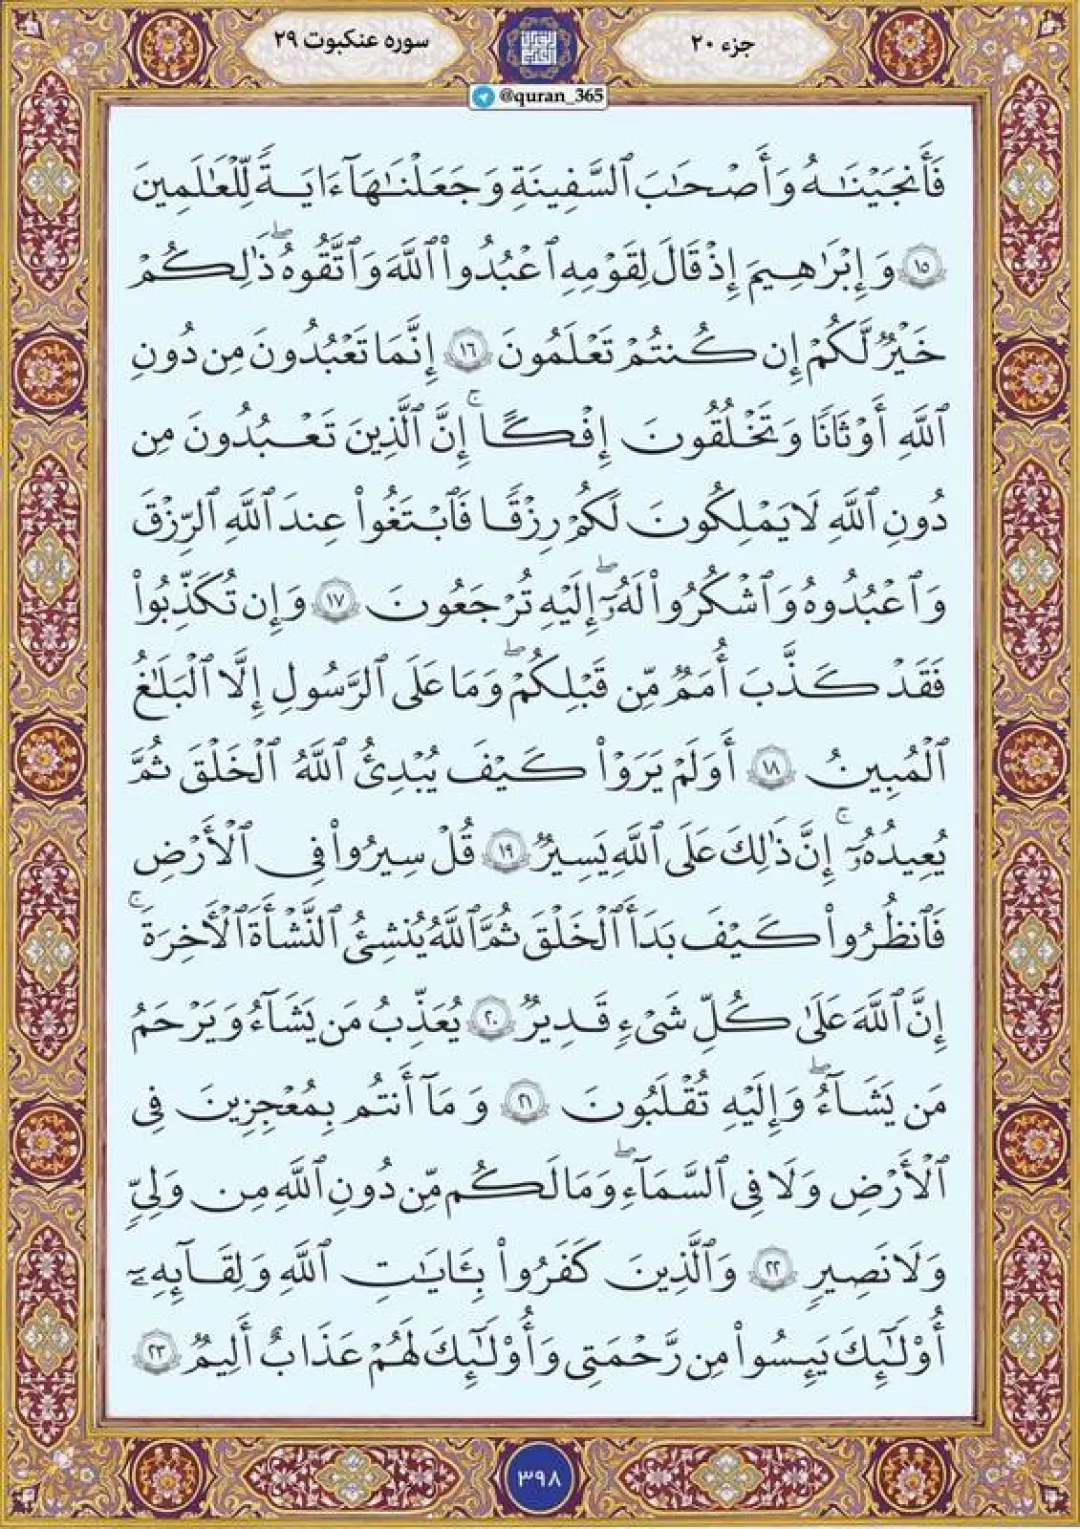 سوره عنکبوت ۲۹
جزء ۲۰
@quran_365
فَأَنجَيْنَٰهُ وَأَصْحَٰبَ ٱلسَّفِينَةِ وَجَعَلْنَٰهَآ ءَايَةً لِّلْعَٰلَمِينَ
١٥ وَإِبْرَٰهِيمَ إِذْ قَالَ لِقَوْمِهِ ٱعْبُدُوا۟ ٱللَّهَ وَٱتَّقُوهُ ۖ ذَٰلِكُمْ
خَيْرٌ لَّكُمْ إِن كُنتُمْ تَعْلَمُونَ ١٦ إِنَّمَا تَعْبُدُونَ مِن دُونِ
ٱللَّهِ أَوْثَٰنًا وَتَخْلُقُونَ إِفْكًا ۚ إِنَّ ٱلَّذِينَ تَعْبُدُونَ مِن
دُونِ ٱللَّهِ لَا يَمْلِكُونَ لَكُمْ رِزْقًا فَٱبْتَغُوا۟ عِندَ ٱللَّهِ ٱلرِّزْقَ
وَٱعْبُدُوهُ وَٱشْكُرُوا۟ لَهُۥٓ ۖ إِلَيْهِ تُرْجَعُونَ ١٧ وَإِن تُكَذِّبُوا۟
فَقَدْ كَذَّبَ أُمَمٌ مِّن قَبْلِكُمْ ۖ وَمَا عَلَى ٱلرَّسُولِ إِلَّا ٱلْبَلَٰغُ
ٱلْمُبِينُ ١٨ أَوَلَمْ يَرَوْا۟ كَيْفَ يُبْدِئُ ٱللَّهُ ٱلْخَلْقَ ثُمَّ
يُعِيدُهُۥٓ ۚ إِنَّ ذَٰلِكَ عَلَى ٱللَّهِ يَسِيرٌ ١٩ قُلْ سِيرُوا۟ فِى ٱلْأَرْضِ
فَٱنظُرُوا۟ كَيْفَ بَدَأَ ٱلْخَلْقَ ثُمَّ ٱللَّهُ يُنشِئُ ٱلنَّشْأَةَ ٱلْأَخِرَةَ ۚ
إِنَّ ٱللَّهَ عَلَىٰ كُلِّ شَىْءٍ قَدِيرٌ ٢٠ يُعَذِّبُ مَن يَشَآءُ وَيَرْحَمُ
مَن يَشَآءُ ۖ وَإِلَيْهِ تُقْلَبُونَ ٢١ وَمَآ أَنتُم بِمُعْجِزِينَ فِى
ٱلْأَرْضِ وَلَا فِى ٱلسَّمَآءِ ۖ وَمَا لَكُم مِّن دُونِ ٱللَّهِ مِن وَلِىٍّ
وَلَا نَصِيرٍ ٢٢ وَٱلَّذِينَ كَفَرُوا۟ بِـَٔايَٰتِ ٱللَّهِ وَلِقَآئِهِۦٓ
أُو۟لَٰٓئِكَ يَئِسُوا۟ مِن رَّحْمَتِى وَأُو۟لَٰٓئِكَ لَهُمْ عَذَابٌ أَلِيمٌ ٢٣
۳۹۸